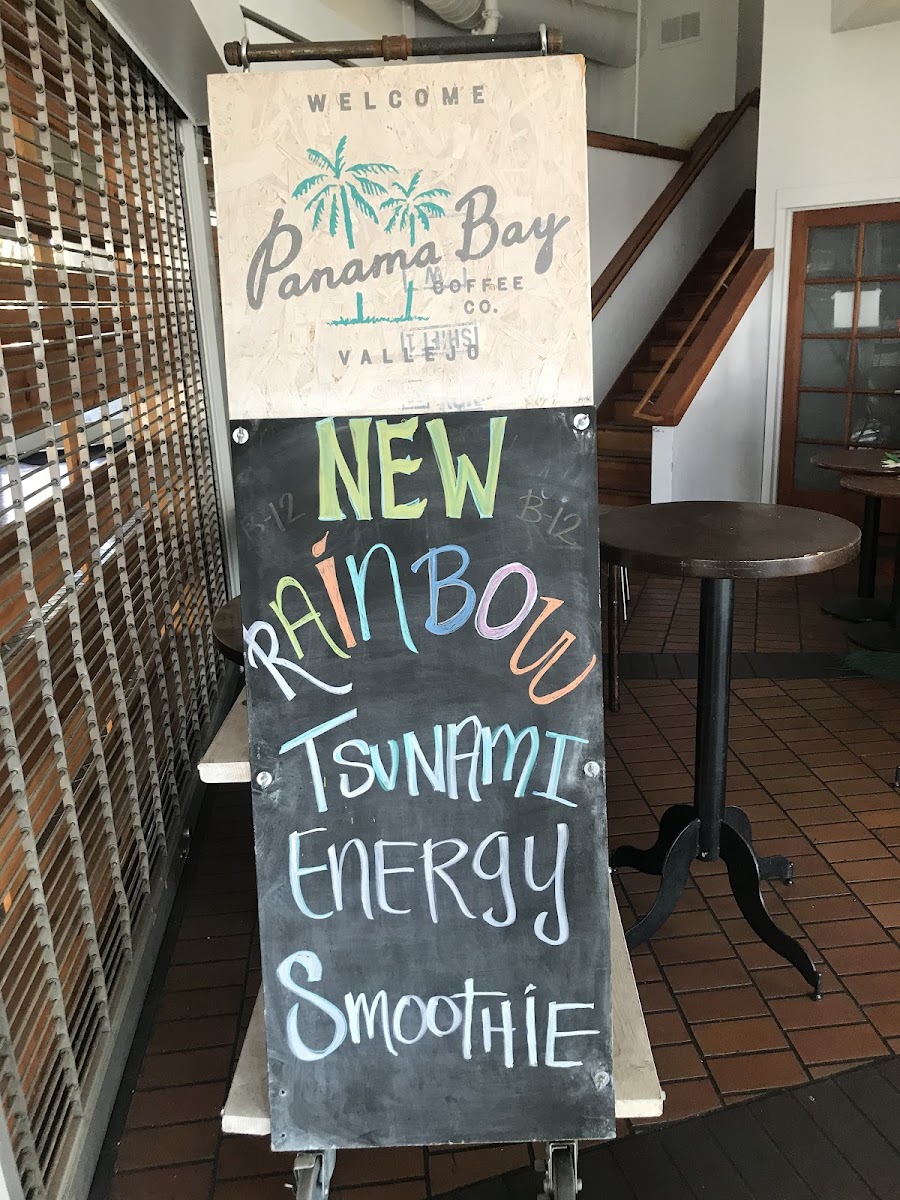 WELCOME
Panama Bay
COFFEE
CO.
VALLEJO
NEW
B-12 B-12
RAINBOW
TSUNAMI
ENERGY
SMOOTHIE